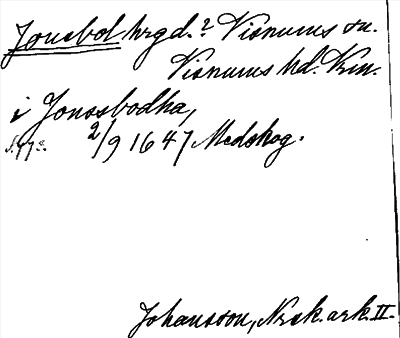 Jonsbol hrgd.? Visnums sn.
Visnums hd. Krn.
i Jonssbodha,
2/9 1647 Medskog.
Johansson, Nrsk. ark. II.